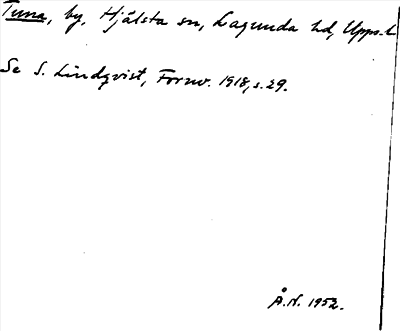 Tuna, by, Hjälsta sn, Lagunda hd, Upps. l.
Se S. Lindqvist, Fornv. 1918, s. 29.
Å.N. 1952.